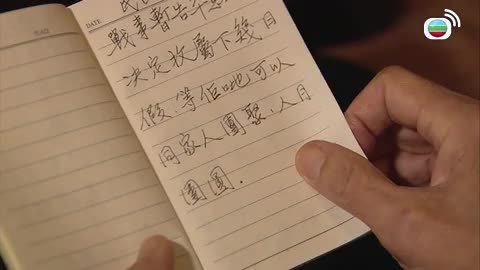 DATE
戰事暫告平息
决定放屬下幾日
假,等佢哋可以
同家人團聚,人月
團圓.